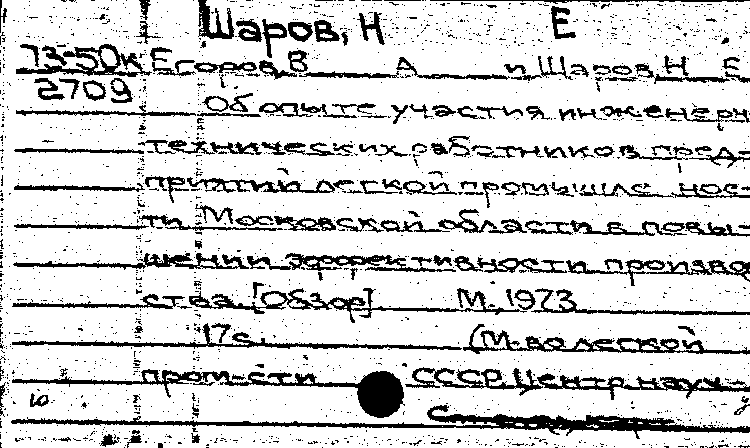 Шаров, Н Е
73-50к Егоров, В А и Шаров, Н Е
2709 Об опыте участия инженерн
технических работников пред-
приятий легкой промышле нос-
ти Московской области в повы-
шении эффективности произво
ства. [Обзор] М., 1973
17с. (М-во легкой
пром-сти СССР. Центр науч-